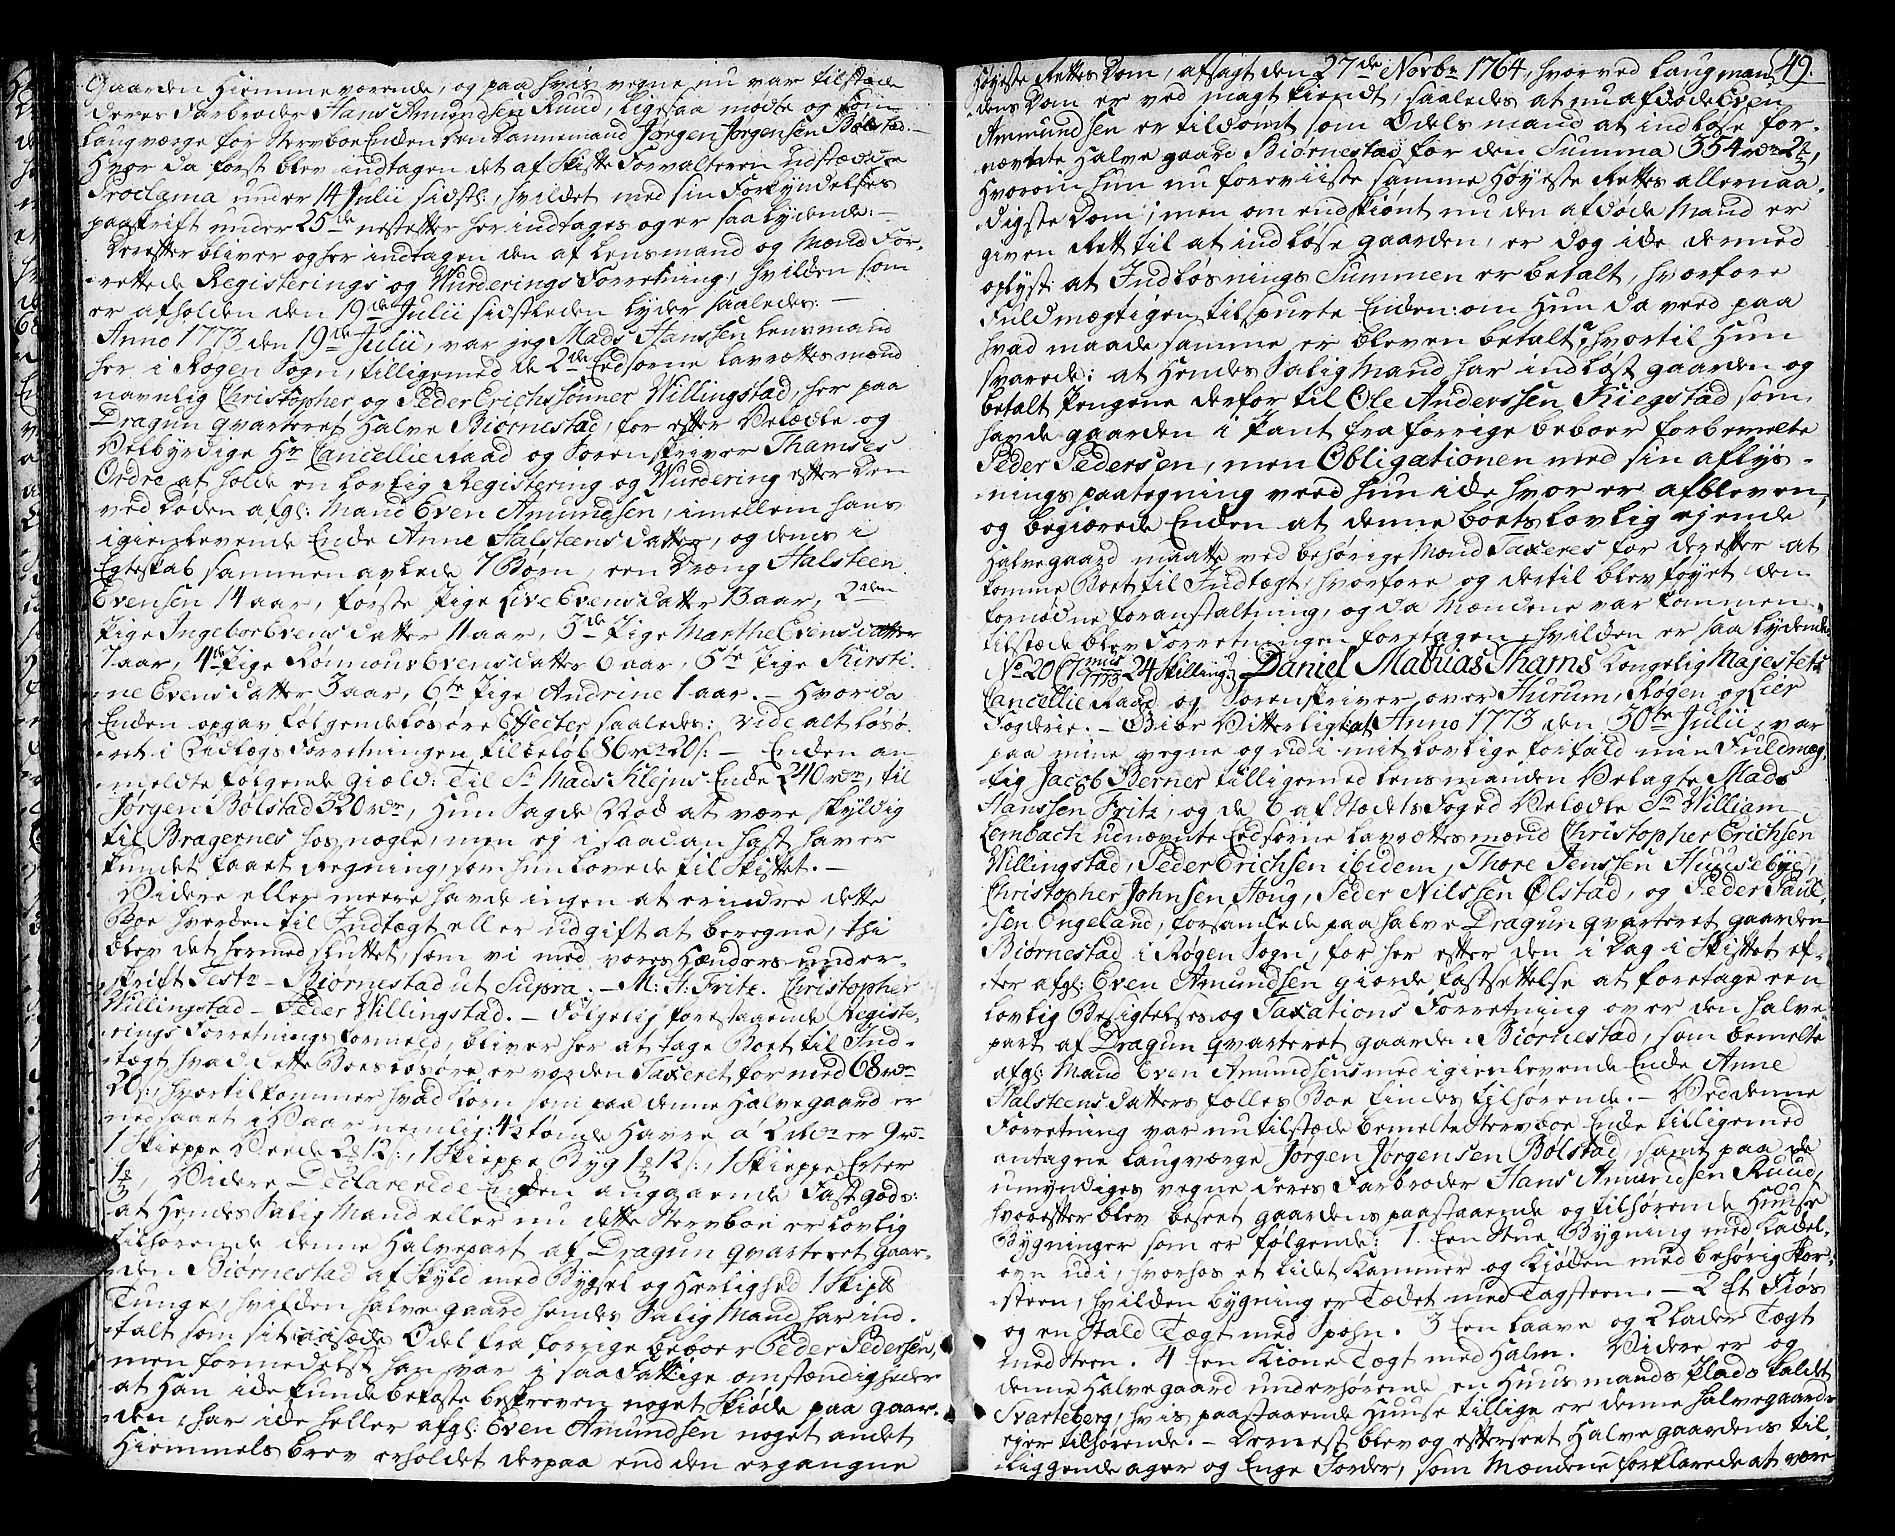 Gaarden Hiemmeværende, og paa hvis vegne nu var tilstæde
deres Farbroder Hans Amundsen Ruud, ligesaa mødte og som
Laugværge for Sterboe Enden den Dannemand Jørgen Jørgensen Bølstad.-
Hvor da først blev indtagen det af Skifte Forvalteren udstædde
Proclama under 14 Julii sidstl:, hvildet med sin Forkyndelses
paaskrift under 25de nestefter her indtages og er saa lydende:-
Derefter bliver og her indtagen den af Lensmand og Mænd For-
-rettede Registerings og Wurderings Forretning, hvilden som
er afholden den 19de Julii sidstleden lyder saaledes:-
Anno 1773 den 19de Julii, var jeg Mads Hanssen Lensmand
her i Røgen Sogn, tilligemed de 2de Eedsorne Laurettesmænd
navnlig Christopher og Peder Erichssønner Willingstad, her paa
Dragun qvarteret Halve Biørnestad, for efter Velædle og
Velbyrdige Hr Cancellie Raad og Sorenskriver Thamses
Ordre at holde en Lovlig Registering og Wurdering efter den
ved Døden afgl: Mand Even Amundsen, imellem hans
igienlevende Enke Anne Halsteensdatter, og deres i
Egteskab sammen avlede 7 Børn, een Dræng Halsteen
Evensen 14 aar, første Pige Live Evensdatter 13 aar, 2den
Pige Ingebor Evensdatter 11 aar, 3de Pige Marthe Evensdatter
7 aar, 4de Pige Rønnoue Evensdatter 6 aar, 5te Pige Kirsti-
-ne Evensdatter 3 aar, 6te Pige Andrine 1 aar.- Hvor da
Enden opgav følgende Løsøre Effecter saaledes: vide alt Løsø-
-ret i Bielægs Forretningen til beløb 86 rd 2 20 s:- Enden an-
-meldte følgende Giæld: Til Sr Mads Klejns Enke 240 rdr, til
Jørgen Bølstad 320 rdr, Hun Sagde Vod at være skyldig
til Bragernes hos nogle, men ej i saadan hast haver
kundet faaet Regning, som hun lovede til Skiftet.-
Videre eller meere havde ingen at erindre dette
Boe hverden til Indtægt eller udgift at beregne, thi
blev det hermed sluttet, som vi med vores Hænders under-
-skrift Testr- Biørnestad ut Supra.- M: H: Fritz. Christopher
Willingstad- Peder Willingstad.- Følgelig forestaaende Registe-
-rings Forretnings formeld, bliver her at tage Boet til Ind-
-tægt hvad dette Boes Løsøre er vorden Taxeret for med 68 rdr
2 s:, hvortil kommer hvad Korn som paa denne Halve gaard er
nedsaaet i Vaar nemlig: 4½ tønde Havre á 2 rdr er 9 rd
1 Skieppe Vede 2 12 s:, 1 Skieppe Byg 1 12 s:, 1 Skieppe Erter
1, Videre Declarerede Enden angaaende Fast gods:
at Hendes Salig Mand eller nu dette Sterboe er Lovlig
tilhørende denne Halvepart af Dragun qvarteret Gaar-
-den Biørnestad af Skyld med Bygsel og Herlighed 1 Skipd
Tunge, hvilden halve gaard hendes Salig Mand har ind-
-talt som sit Odel fra forrige beboer Peder Pedersen,
men formedelst han var i saa Fattige omstændigheder
at Han ide kunde bekoste beskreven noget Skiøde paa gaar-
-den, har ide heller afgl: Even Amundsen noget andet
Hiemmels brev erholdet derpaa end den ergangne
49.
Høyeste Rettes Dom, afsagt den 27de Novbr 1764, hvor ved Laugman-
-dens Dom er ved magt kiendt, saaledes at nu afdøde Even
Ammundsen er tildømt som Odels mand at indløse for-
-nævnte Halve gaard Biørnestad for den Summa 354 rdr 2,
Hvorom hun nu foreviiste samme Høyeste Rettes allernaa-
-digste Dom; men om endskiønt nu den afdøde Mand er
given Rett til at indløse gaarden, er dog ide dermed
oplyst: at Indløsnings Summen er betalt, hvorfore
Fuldmægtigen tilspurte Enden: om Hun da veed paa
hvad maade samme er bleven betalt? hvortil Hun
svarede: at Hendes Salig Mand har indløst gaarden og
betalt Pengene derfor til Ole Anderssen Kiegstad som
havde gaarden i Pant fra forrige beboer forbemelte
Peder Pedersen, men Obligationen med sin aflys-
-nings paategning veed hun ide hvor er afbleven,
og begiærede Enden at denne boets lovlig ejende
Halve gaard maatte ved behørige Mænd Taxeres for derefter at
komme Boet til Indtægt; hvorfore og dertil blev føyet den
fornødne foranstaltning, og da Mændene var kommen
tilstæde blev Forretningen foretagen, hvilden er saa lydende:
No 20 (7 mrks 1773 24 Skilling:) Daniel Mathias Thams Kongelig Majestets
Cancellie Raad og Sorenskriver over Hurum, Røgen og Lier
Fogderie.- Giør Vitterligt: at Anno 1773 den 30te Julii, var
paa mine vegne og udi mit lovlige forfald min Fuldmæg-
-tig Jacob Berner tilligemed Lensmanden Velagte Mads
Hanssen Fritz, og de 6 af Stædets Foged Velædle Sr William
Lembach udnævnte Eedsorne Laurettesmænd Christopher Erichsen
Willingstad, Peder Erichsen ibidem, Thore Jenssen Huusebye,
Christopher Johnsen Houg, Peder Nilssen Ølstad, og Peder Paul-
-sen Engeland, forsamlede paa halve Dragun qvarteret gaarden
Biørnestad i Røgen Sogn, for her efter den i Dag i Skiftet ef-
-ter afgl: Even Amundsen giorde fastsettelse at foretage een
Lovlig Besigtelses og Taxations Forretning over den halve
part af Dragun qvarteret gaarden Biørnestad, som bemelte
afgl: Mand Even Amundsens med igienlevende Enke Anne
Halsteensdatters fælles Boe findes tilhørende.- Ved denne
Forretning var nu tilstæde bemelte Sterboe Enke tilligemed
antagne Laugværge Jørgen Jørgensen Bølstad, samt paa de
umyndiges vegne deres Farbroder Hans Amundsen Ruud,
hvorefter blev beseet gaardens paastaaende og tilhørende Huuse
Bygninger som er følgende: 1. Een Stue Bygning med Kadel-
-ovn udi, hvorhos et lidet Kammer og Kiøden med behørig Skor-
-steen, hvilden bygning er Tædet med Tagsteen.- 2 Et Fiøs
og en Stald Tægt med Spohn. 3 Een Laave og 2 Lader Tægt
med Steen. 4 Een Kione Tægt med Halm. Videre er og
denne Halve gaard underhørende en Huusmands Plads kaldet
Svarteberg, hvis paastaaende Huuse tillige er denne halve gaards
ejer tilhørende.- Dernest blev og efterseet Halve gaardens til-
-liggende ager og Enge Jorder, som Mændene forklarede at være